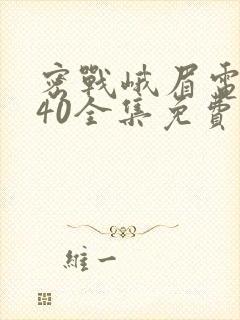 密戰峨眉電
40全集免費
維一